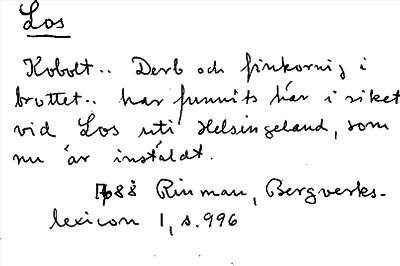 Los
Kobolt.. Derb och finkornig i
brottet.. har funnits här i riket
vid Los uti Helsingeland, som
nu är instäldt.
1788 Rinman, Bergverks-
lexicon 1, s. 996